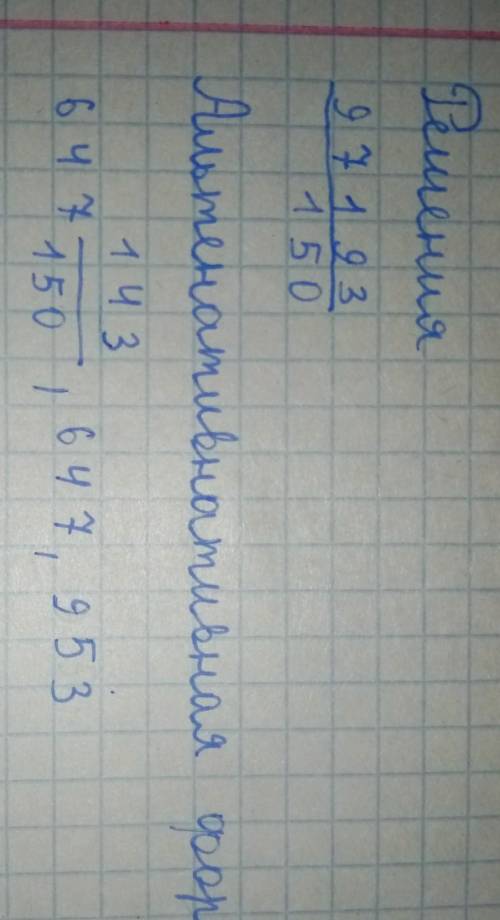 Решения
97193
150
Альтенативнативная фор
143
647 150, 647, 953